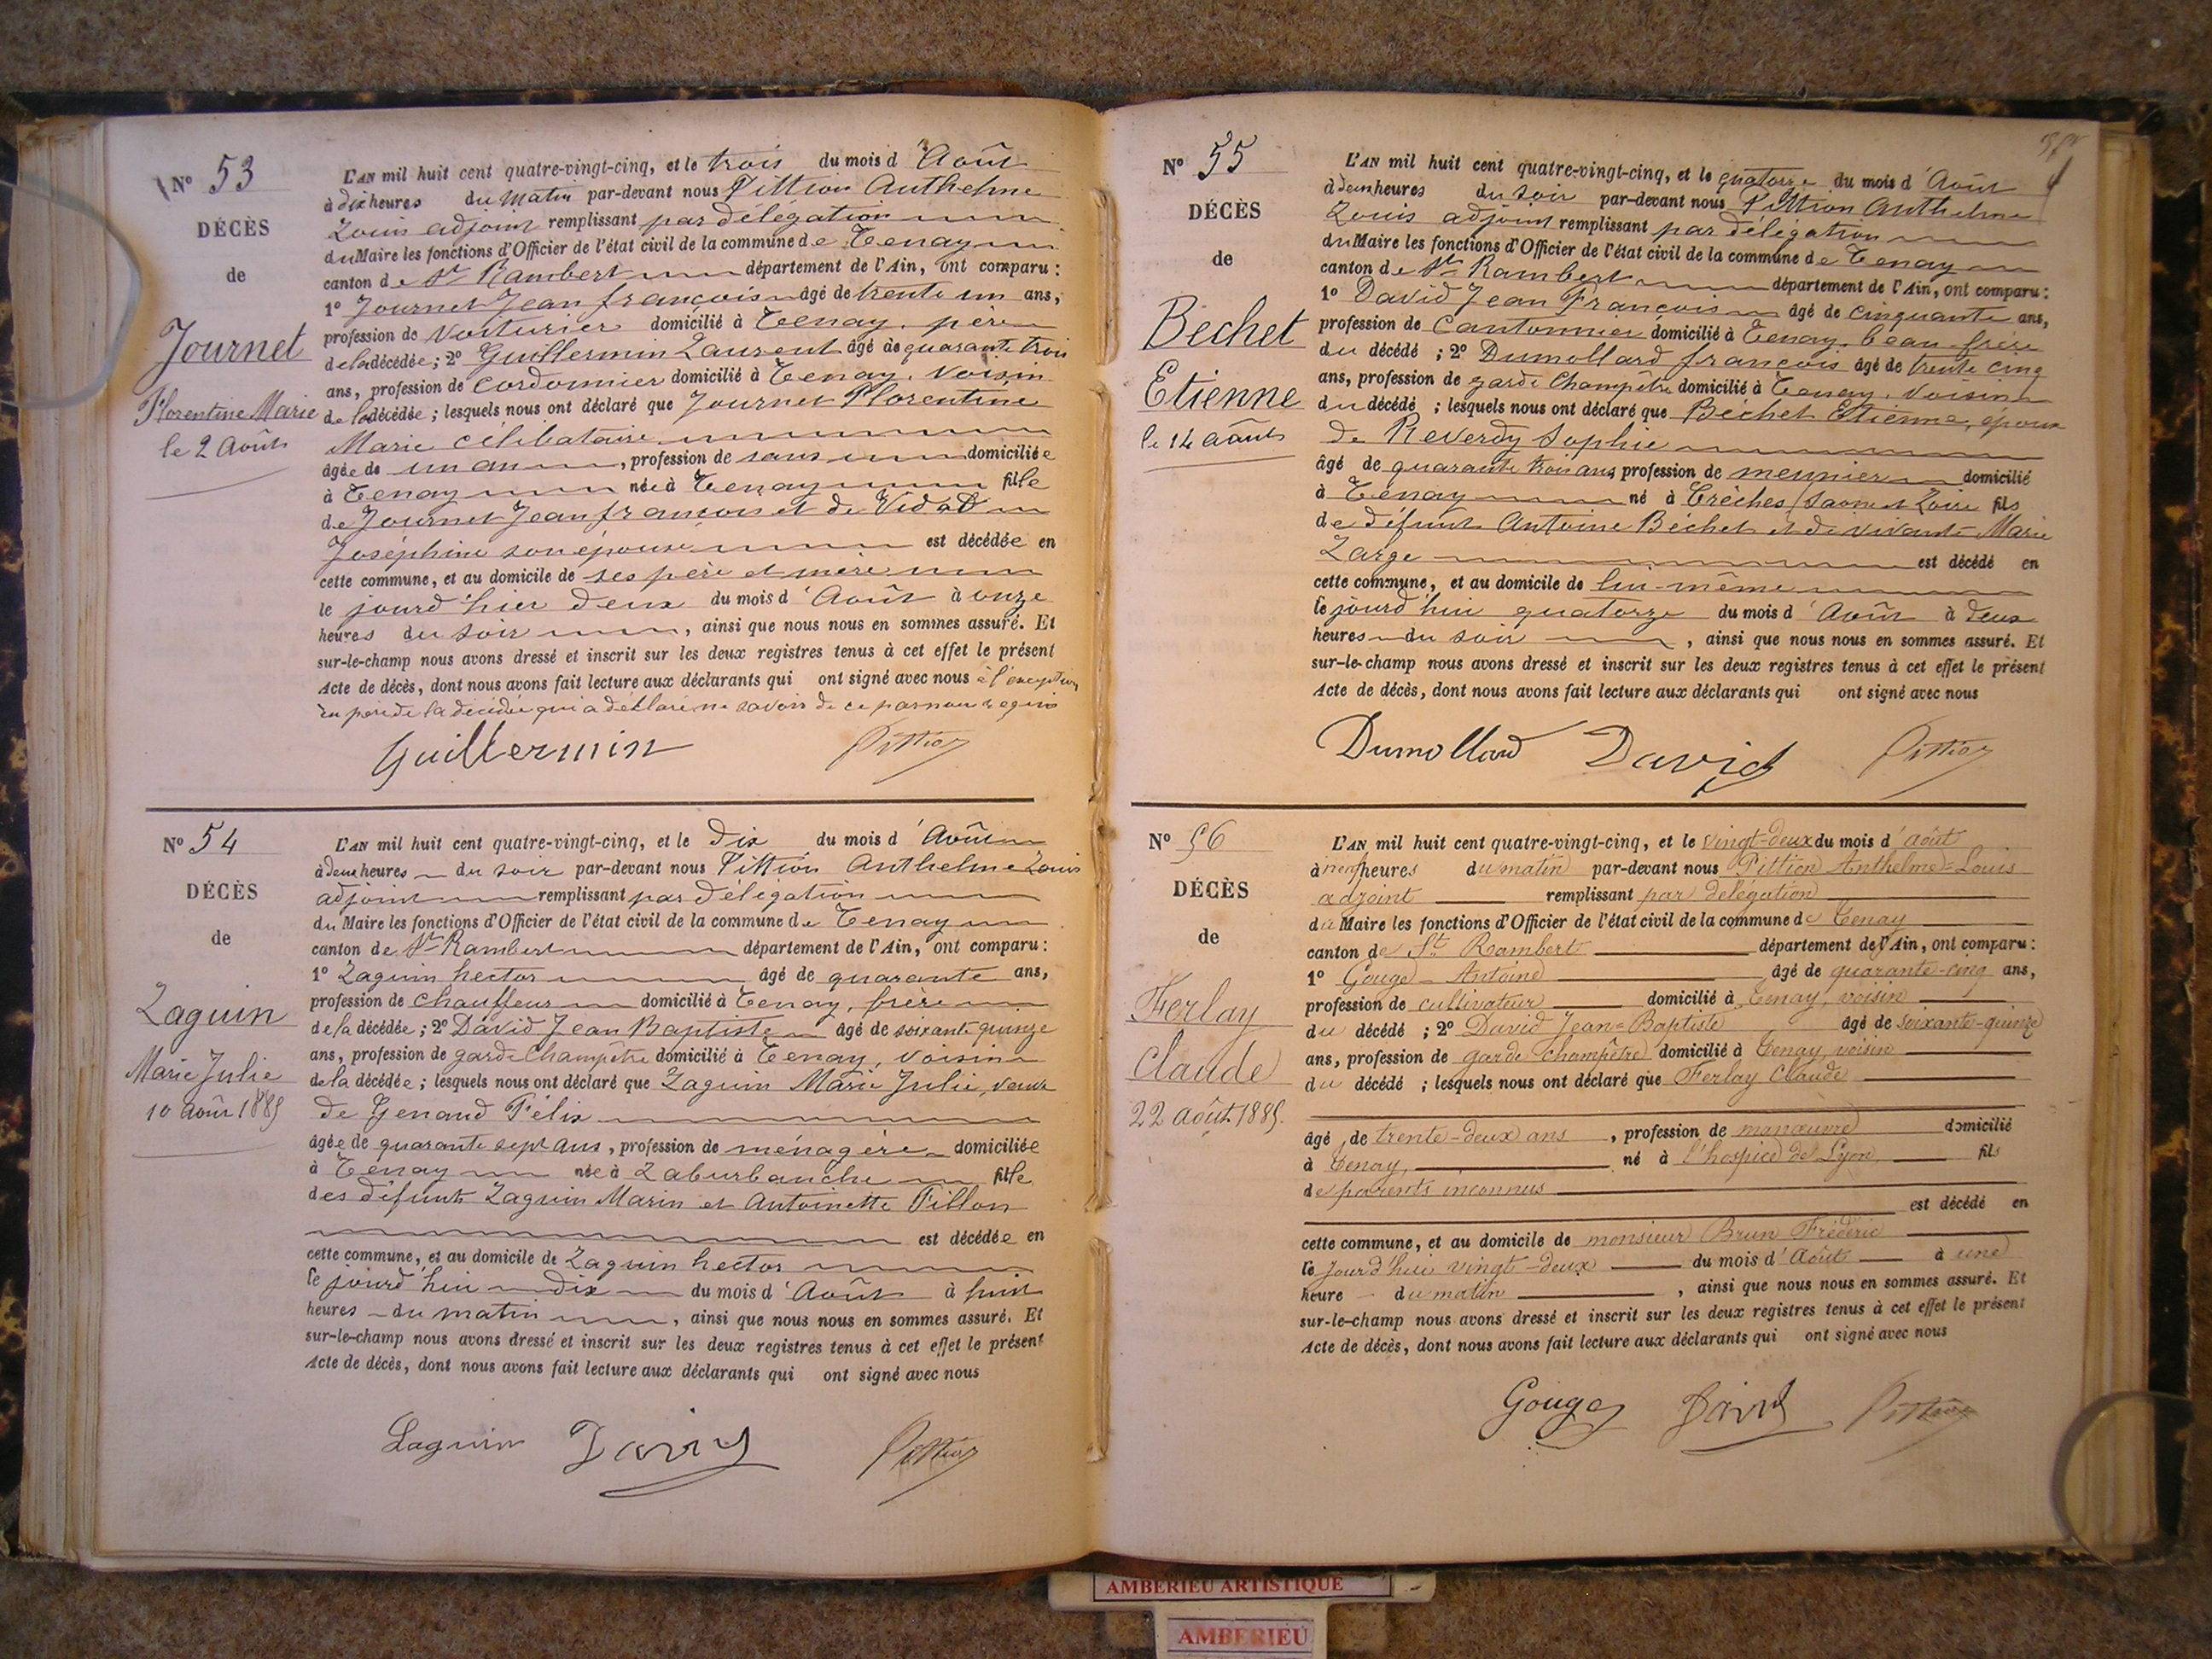 N° 53
DÉCÈS
de
Journet
Florentine Marie
le 2 Août
L'AN mil huit cent quatre-vingt-cinq, et le trois du mois d'Août
à dix heures du matin par-devant nous Pittion Anthelme
Louis adjoint remplissant par délégation
du Maire les fonctions d'Officier de l'état civil de la commune de Tenay
canton de St Rambert département de l'Ain, ont comparu :
1° Journet Jean françois âgé de trente un ans,
profession de voiturier domicilié à Tenay, père
de la décédée ; 2° Guillermin Laurent âgé de quarante trois
ans, profession de cordonnier domicilié à Tenay, voisin
de la décédée ; lesquels nous ont déclaré que Journet Florentine
Marie célibataire
âgée de un an, profession de sans domiciliée
à Tenay née à Tenay fille
de Journet Jean françois et de Vidal
Joséphine son épouse est décédée en
cette commune, et au domicile de ses père et mère
le jourd'hier deux du mois d'Août à onze
heures du soir, ainsi que nous nous en sommes assuré. Et
sur-le-champ nous avons dressé et inscrit sur les deux registres tenus à cet effet le présent
Acte de décès, dont nous avons fait lecture aux déclarants qui ont signé avec nous à l'exception
du père de la décédée qui a déclaré ne savoir de ce par nous requis
Guillermin Pittion
N° 54
DÉCÈS
de
Laguin
Marie Julie
10 août 1885
L'AN mil huit cent quatre-vingt-cinq, et le dix du mois d'Août
à deux heures du soir par-devant nous Pittion Anthelme Louis
adjoint remplissant par délégation
du Maire les fonctions d'Officier de l'état civil de la commune de Tenay
canton de St Rambert département de l'Ain, ont comparu :
1° Laguin hector âgé de quarante ans,
profession de chauffeur domicilié à Tenay, frère
de la décédée ; 2° David Jean Baptiste âgé de soixante quinze
ans, profession de garde Champêtre domicilié à Tenay, voisin
de la décédée ; lesquels nous ont déclaré que Laguin Marie Julie, veuve
de Genand Félix
âgée de quarante sept ans, profession de ménagère domiciliée
à Tenay née à Laburbanche fille
des défunts Laguin Marin et Antoinette Fillon
est décédée en
cette commune, et au domicile de Laguin hector
le jourd'hui dix du mois d'Août à huit
heures du matin, ainsi que nous nous en sommes assuré. Et
sur-le-champ nous avons dressé et inscrit sur les deux registres tenus à cet effet le présent
Acte de décès, dont nous avons fait lecture aux déclarants qui ont signé avec nous
Laguin David Pittion
N° 55
DÉCÈS
de
Bechet
Etienne
le 14 août
L'AN mil huit cent quatre-vingt-cinq, et le quatorze du mois d'Août
à deux heures du soir par-devant nous Pittion Anthelme
Louis adjoint remplissant par délégation
du Maire les fonctions d'Officier de l'état civil de la commune de Tenay
canton de St Rambert département de l'Ain, ont comparu :
1° David Jean François âgé de cinquante ans,
profession de Cantonnier domicilié à Tenay, beau-frère
du décédé ; 2° Dumollard françois âgé de trente cinq
ans, profession de garde Champêtre domicilié à Tenay, voisin
du décédé ; lesquels nous ont déclaré que Béchet Etienne, époux
de Reverdy Sophie
âgé de quarante trois ans, profession de meunier domicilié
à Tenay né à Crèches (Saone et Loire fils
de défunt Antoine Béchet et de vivante Marie
Large est décédé en
cette commune, et au domicile de lui-même
le jourd'hui quatorze du mois d'Août à deux
heures du soir, ainsi que nous nous en sommes assuré. Et
sur-le-champ nous avons dressé et inscrit sur les deux registres tenus à cet effet le présent
Acte de décès, dont nous avons fait lecture aux déclarants qui ont signé avec nous
Dumollard David Pittion
N° 56
DÉCÈS
de
Ferlay
Claude
22 août 1885.
L'AN mil huit cent quatre-vingt-cinq, et le vingt-deux du mois d'août
à neuf heures du matin par-devant nous Pittion Anthelme=Louis
adjoint remplissant par délégation
du Maire les fonctions d'Officier de l'état civil de la commune de Tenay
canton de St Rambert département de l'Ain, ont comparu :
1° Gouge Antoine âgé de quarante-cinq ans,
profession de cultivateur domicilié à Tenay, voisin
du décédé ; 2° David Jean=Baptiste âgé de soixante-quinze
ans, profession de garde champêtre domicilié à Tenay, voisin
du décédé ; lesquels nous ont déclaré que Ferlay Claude
âgé de trente-deux ans, profession de manœuvre domicilié
à Tenay, né à l'hospice de Lyon, fils
de parents inconnus
est décédé en
cette commune, et au domicile de monsieur Brun Frédéric
le jourd'hui vingt-deux du mois d'Août à une
heure du matin, ainsi que nous nous en sommes assuré. Et
sur-le-champ nous avons dressé et inscrit sur les deux registres tenus à cet effet le présent
Acte de décès, dont nous avons fait lecture aux déclarants qui ont signé avec nous
Gouge David Pittion
AMBERIEU ARTISTIQUE
AMBERIEU